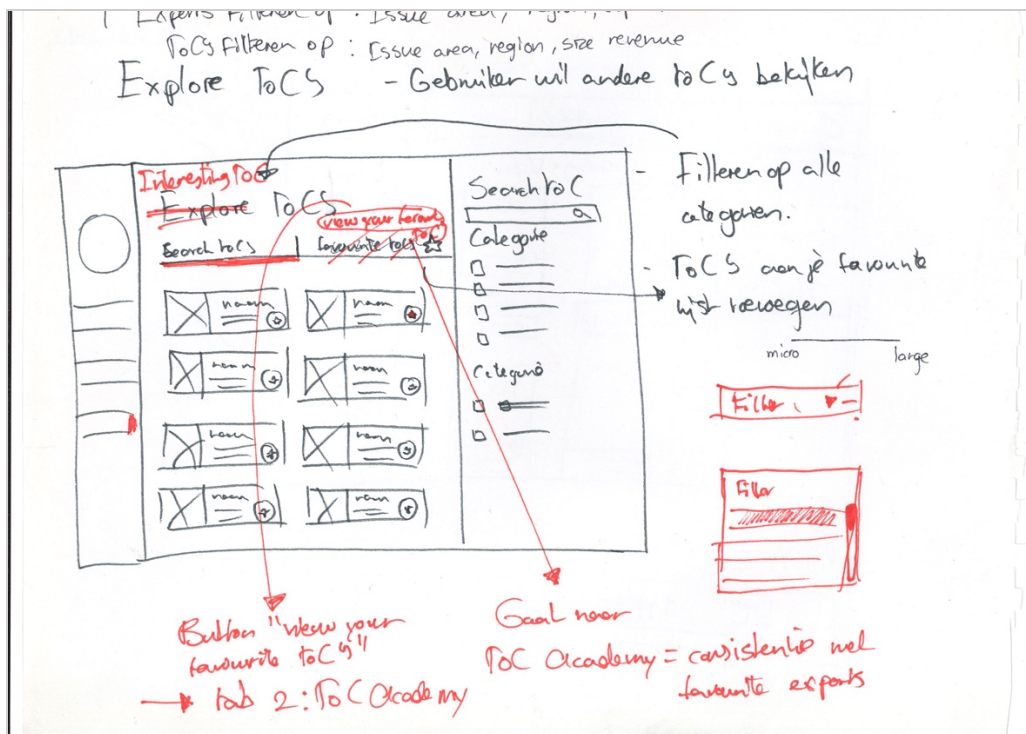 Experts Filteren op : Issue area, region,
ToCs Filteren op : Issue area, region, size revenue
Explore ToCs - Gebruiker wil andere ToCs bekijken
Interesting ToC
Explore ToCs
view your favourite
ToC
Search ToCs
favourite ToCs
naam
naam
naam
naam
naam
naam
naam
naam
Search ToC
Categorie
Categorie
- Filteren op alle
categorien.
- ToCs aan je favourite
lijst toevoegen
micro large
Filter
Filter
Button "view your
favourite ToCs"
tab 2: ToC Academy
Gaat naar
ToC Academy = consistentie met
favourite experts